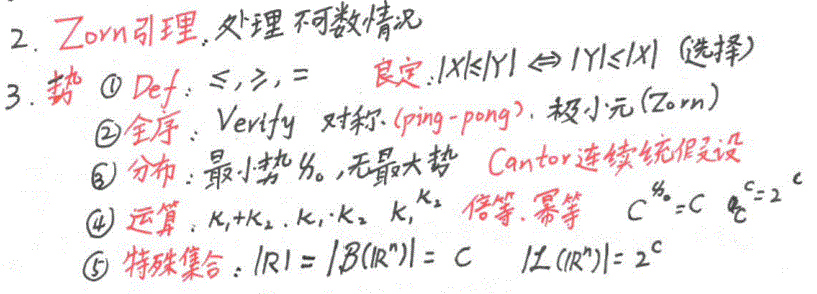 2. Zorn引理: 处理不可数情况
3. 势 ① Def: ≤, ≥, = 良定: |X|≤|Y| ⇔ |Y|≤|X| (选择)
② 全序: Verify 对称 (ping-pong). 极小元 (Zorn)
③ 分布: 最小势 ℵ₀, 无最大势 Cantor连续统假设
④ 运算: K₁+K₂. K₁·K₂ K₁^K₂ 倍等. 幂等 C^ℵ₀=C C^C=2^C
⑤ 特殊集合: |R|=|B(Rⁿ)|=C |L(Rⁿ)|=2^C